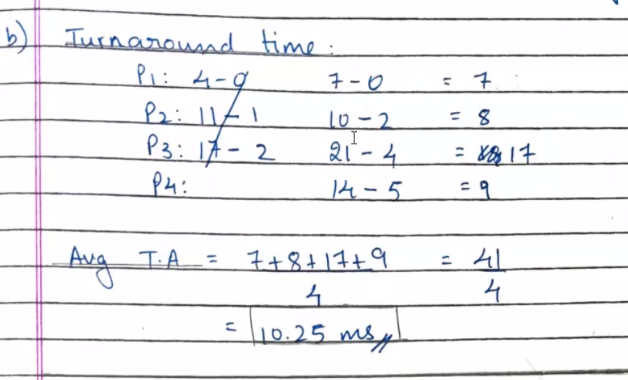 b) Turnaround time:
P1: 4-0 7-0 = 7
P2: 11-1 10-2 = 8
P3: 17-2 21-4 = 17
P4: 14-5 = 9
Avg T.A = 7+8+17+9 / 4 = 41 / 4
= 10.25 ms